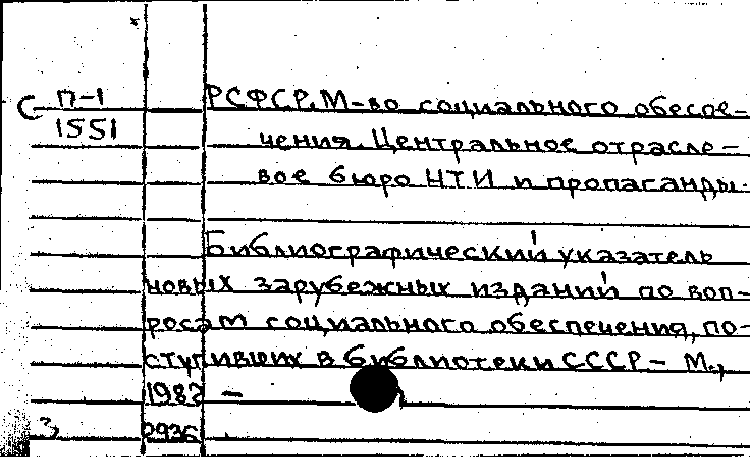 С П-1 РСФСР. М-во социального обеспе-
1551 чения. Центральное отрасле-
вое бюро НТИ и пропаганды.
Библиографический указатель
новых зарубежных изданий по воп-
росам социального обеспечения, по-
ступивших в библиотеки СССР – М.,
198 –
2936